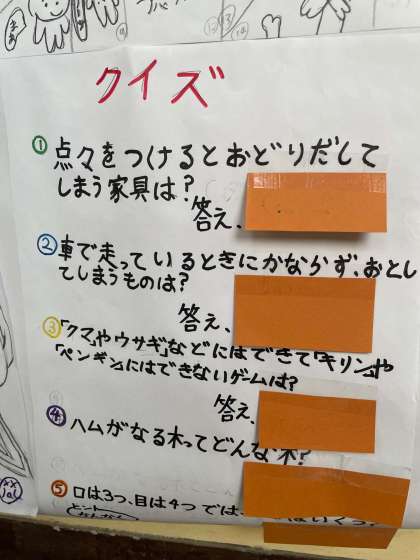 クイズ
① 点々をつけるとおどりだして
しまう家具は?
答え、
② 車で走っているときにかならず、おとし
てしまうものは?
答え、
③ 「クマ」や「ウサギ」などにはできて「キリン」や
「ペンギン」にはできないゲームは?
答え、
④ ハムがなる木ってどんな木?
⑤ 口は3つ、目は4つ では、
はいくつ?
ヒント